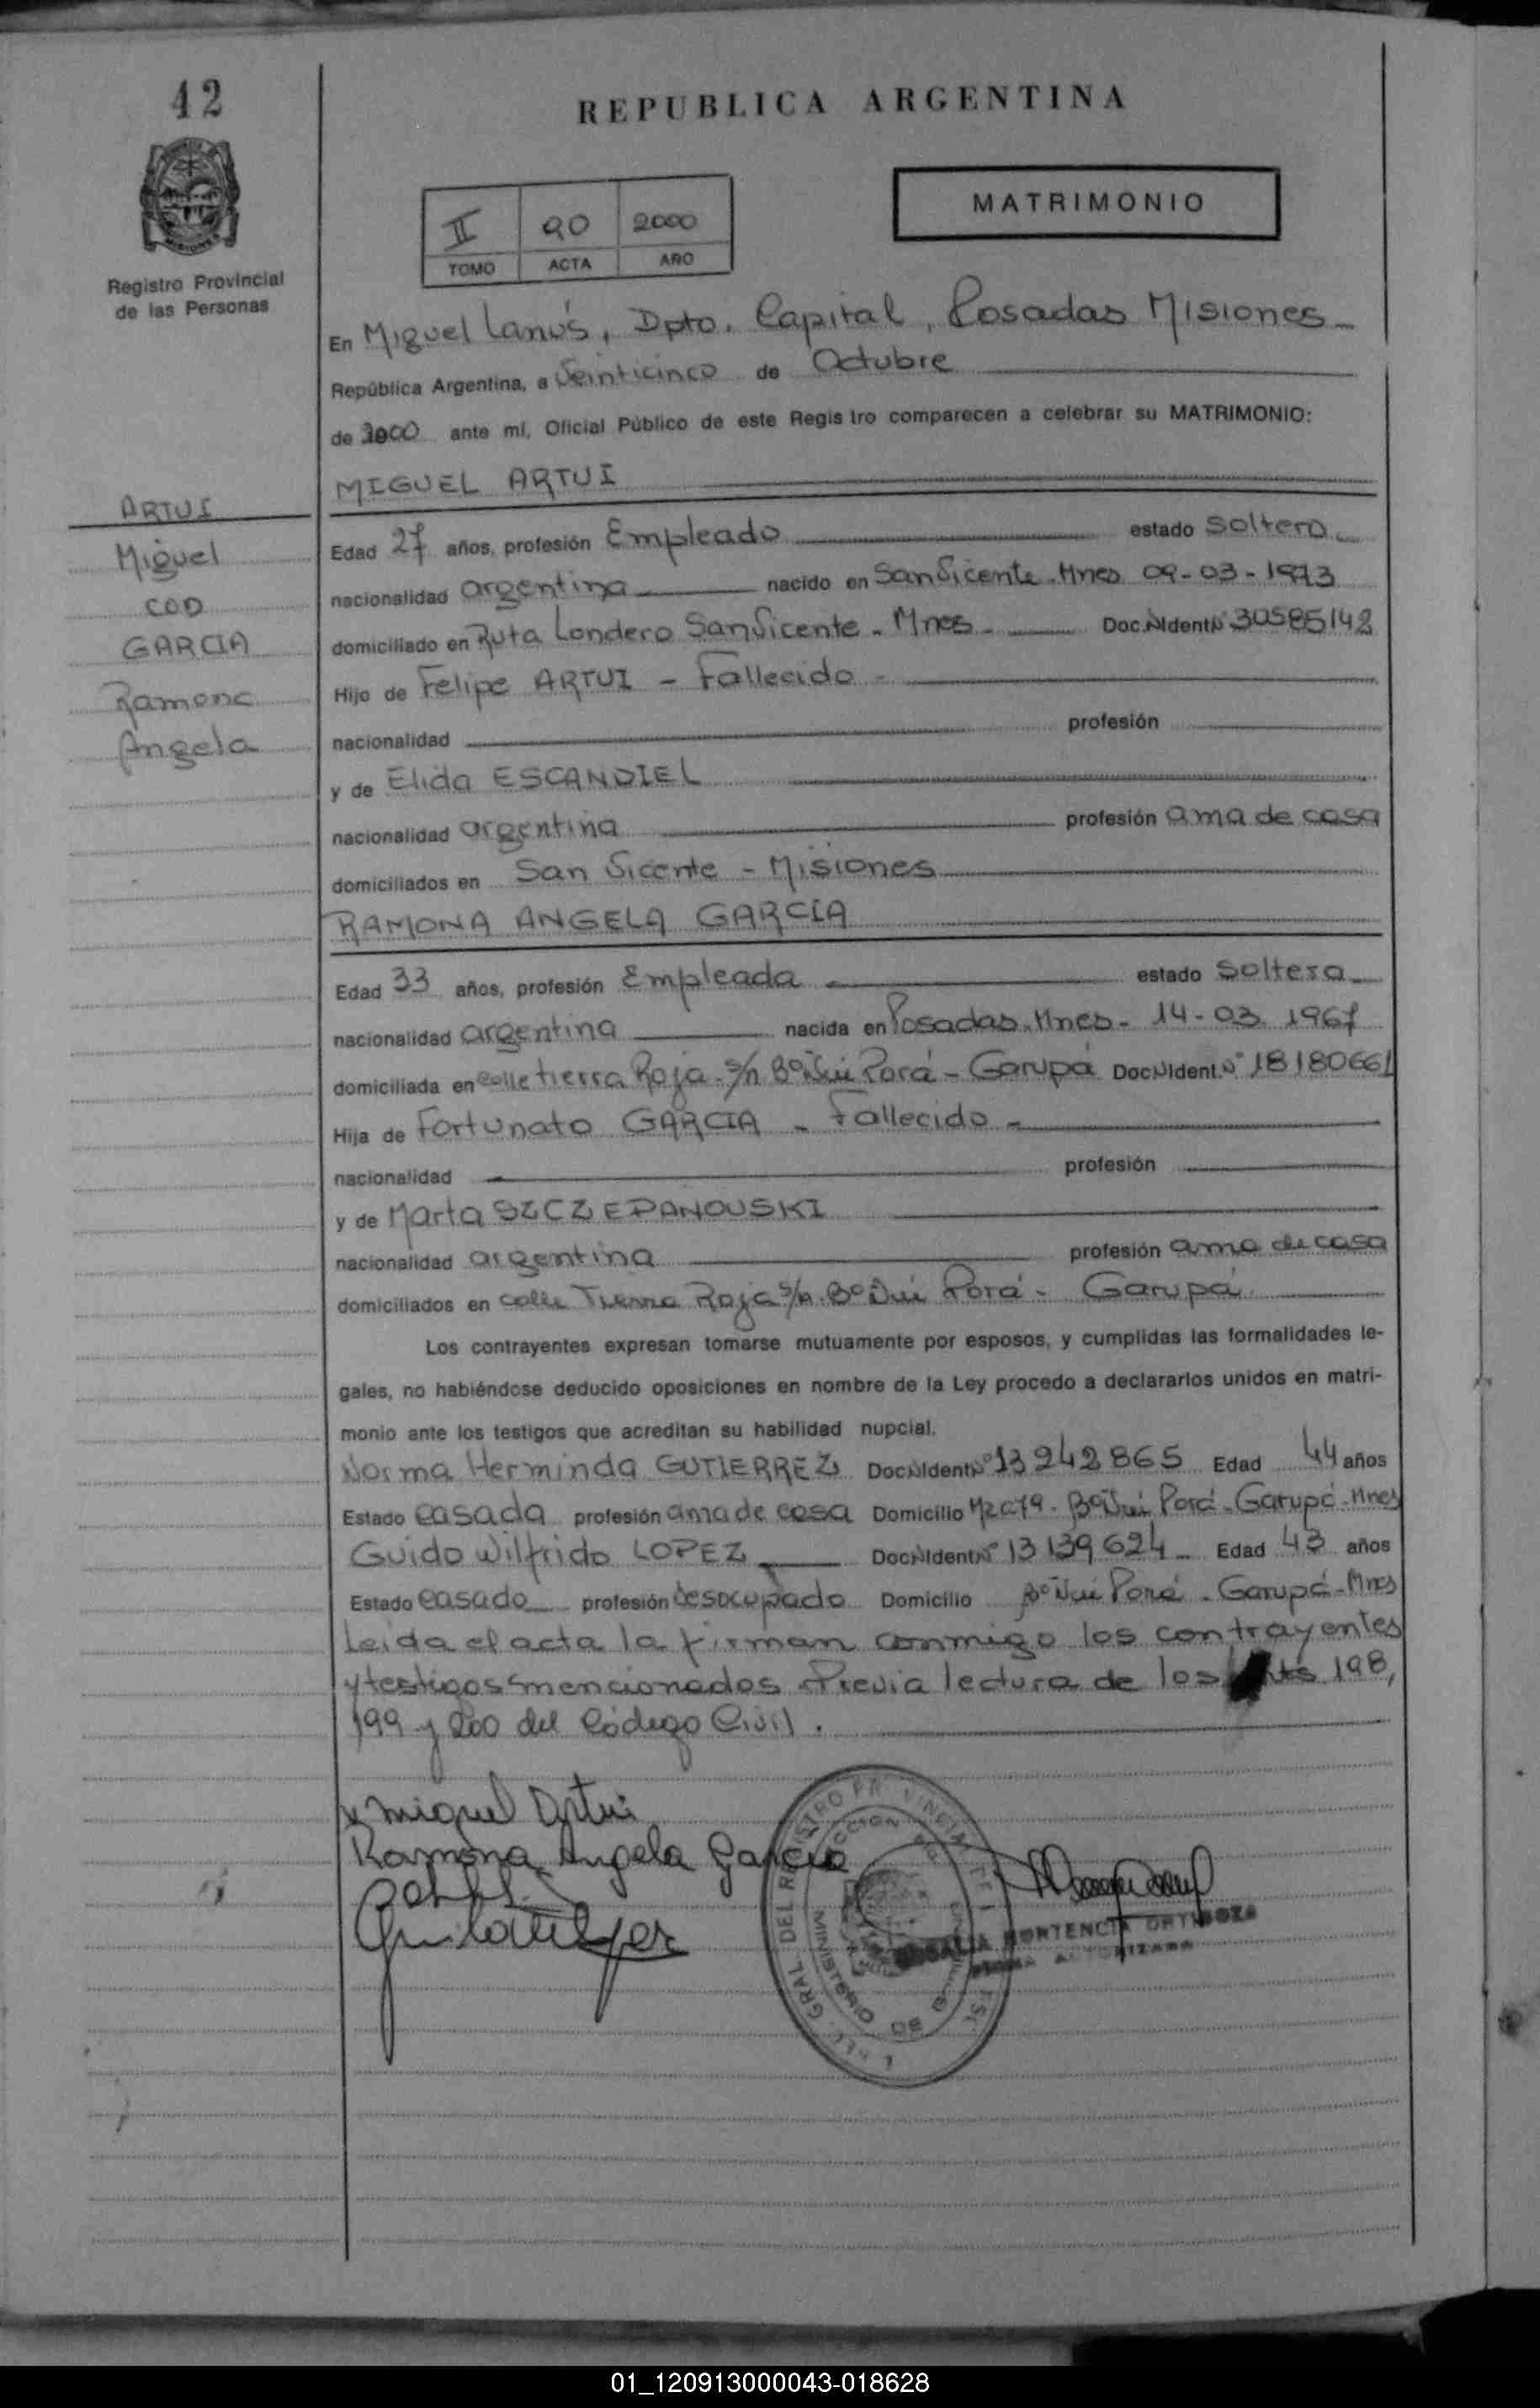 42
REPUBLICA ARGENTINA
MATRIMONIO
II 90 2000
TOMO ACTA AÑO
Registro Provincial
de las Personas
En Miguel Lanús, Dpto. Capital, Posadas Misiones
República Argentina, a Veinticinco de Octubre
de 2000 ante mí, Oficial Público de este Registro comparecen a celebrar su MATRIMONIO:
MIGUEL ARTUI
ARTUI
Miguel
COD
GARCIA
Ramona
Angela
Edad 27 años, profesión Empleado estado Soltero
nacionalidad argentina nacido en San Vicente - Mnes 09-03-1973
domiciliado en Ruta Londero San Vicente - Mnes - Doc.NIdent.Nº 30585142
Hijo de Felipe ARTUI - Fallecido -
nacionalidad profesión
y de Elida ESCANDIEL
nacionalidad argentina profesión ama de casa
domiciliados en San Vicente - Misiones
RAMONA ANGELA GARCIA
Edad 33 años, profesión Empleada estado Soltera
nacionalidad argentina nacida en Posadas - Mnes - 14-03 1967
domiciliada en calle tierra Roja - s/n Bº Ñui Porá - Garupá Doc.NIdent.Nº 18180661
Hija de Fortunato GARCIA - Fallecido -
nacionalidad profesión
y de Marta SZCZEPANOUSKI
nacionalidad argentina profesión ama de casa
domiciliados en calle Tierra Roja s/n. Bº Ñui Porá - Garupá
Los contrayentes expresan tomarse mutuamente por esposos, y cumplidas las formalidades le-
gales, no habiéndose deducido oposiciones en nombre de la Ley procedo a declararlos unidos en matri-
monio ante los testigos que acreditan su habilidad nupcial.
Norma Herminda GUTIERREZ Doc.NIdent.Nº 13242865 Edad 44 años
Estado Casada profesión ama de casa Domicilio Mz C79 - Bº Ñui Porá - Garupá - Mnes
Guido Wilfrido LOPEZ Doc.NIdent.Nº 13139624 - Edad 43 años
Estado Casado profesión desocupado Domicilio Bº Ñui Porá - Garupá - Mnes
Leida el acta la firman conmigo los contrayentes
y testigos mencionados. Previa lectura de los 198,
199 y 200 del Código Civil.
Miguel Artui
Ramona Angela Garcia
HORTENCIA
01_120913000043-018628